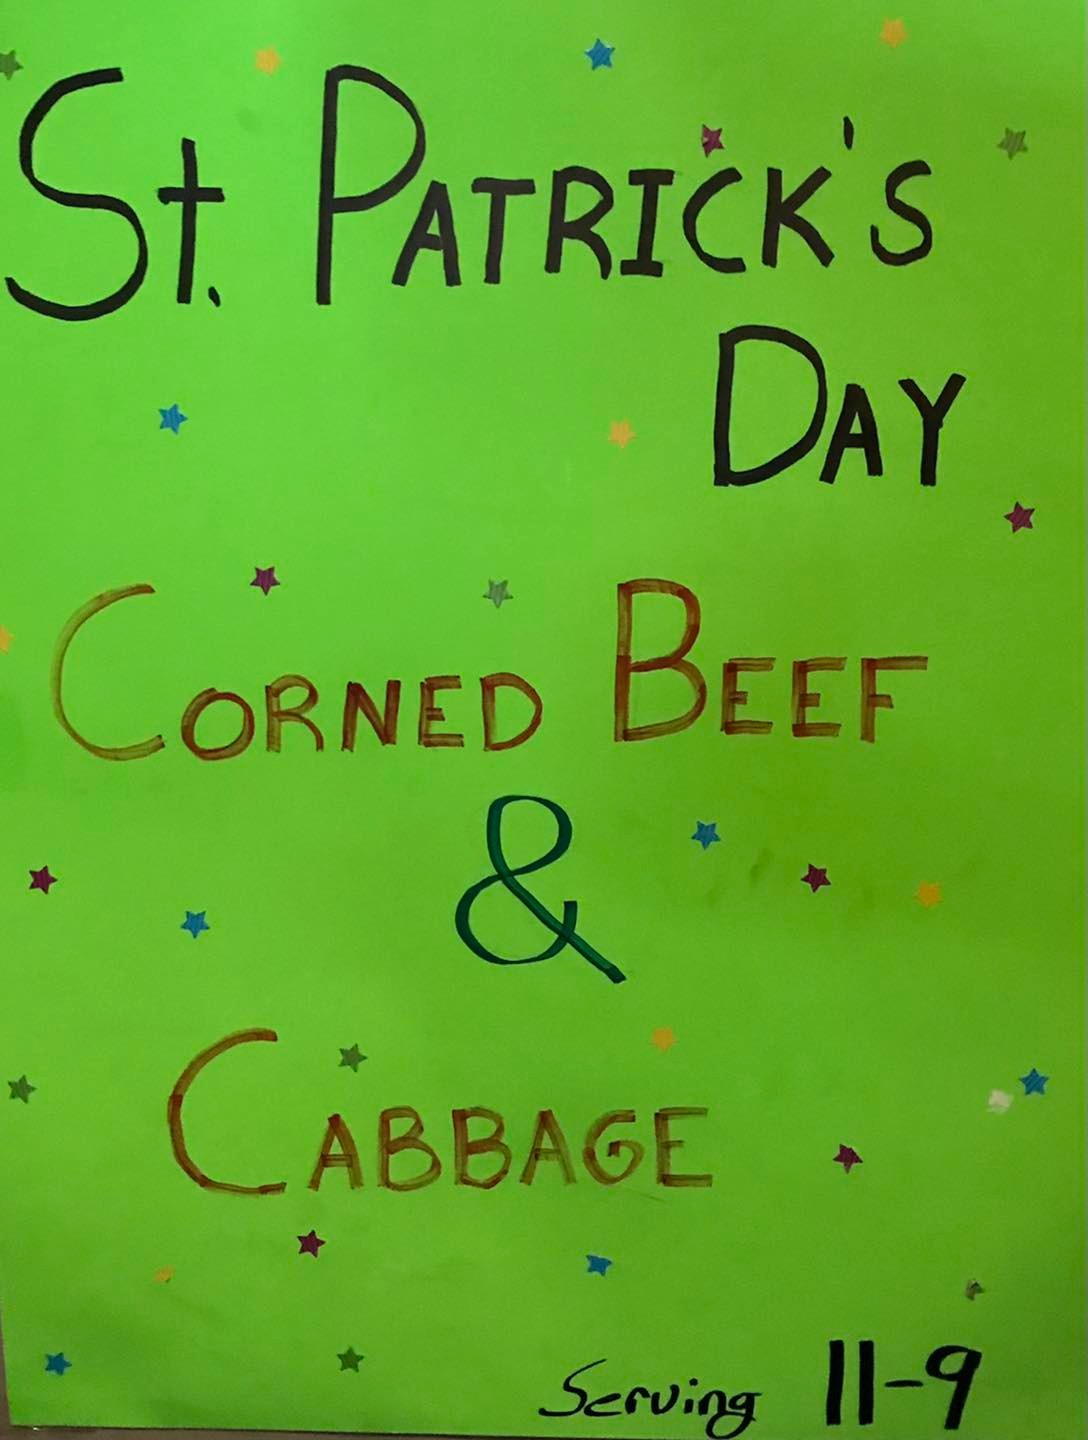 St. PATRICK'S
DAY
CORNED BEEF
&
CABBAGE
Serving 11-9